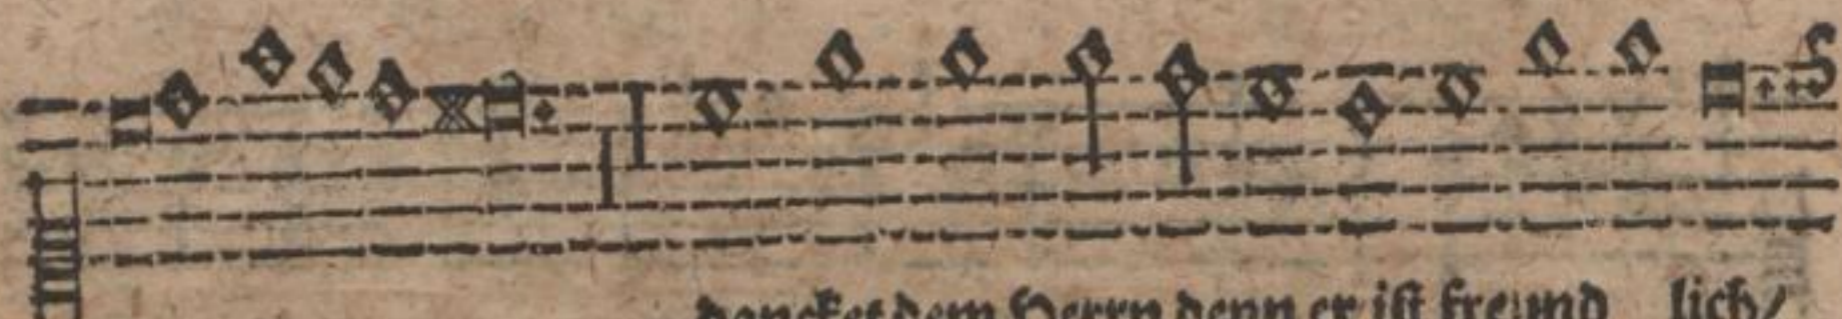 dancket dem Herrn denn er ist freund lich/